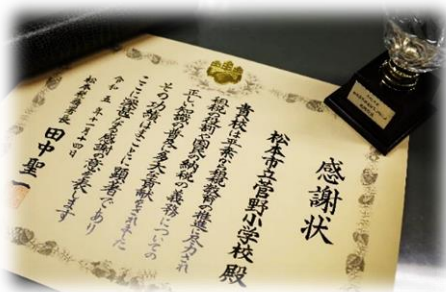 感謝状
松本市立菅野小学校 殿
貴校は平素から租税教育の推進に尽力され
租税の役割や国民の納税の義務についての
正しい知識の普及に多大な貢献をされました
その功績はまことに顕著であり
ここに深甚なる感謝の意を表します
令和五年十一月十四日
松本税務署長 田中聖一